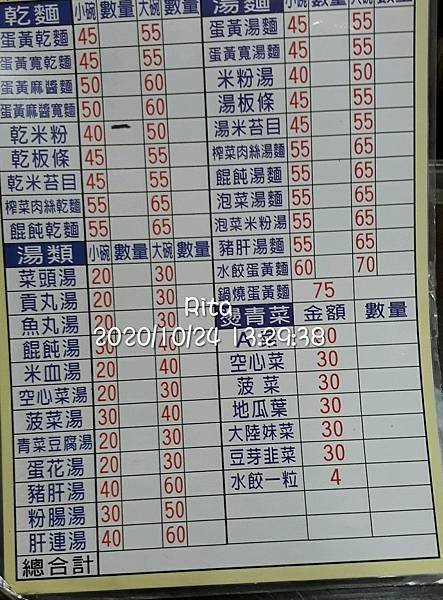 乾麵 小碗 數量 大碗 數量
蛋黃乾麵 45 55
蛋黃寬乾麵 45 55
蛋黃麻醬麵 50 60
蛋黃麻醬寬麵 50 60
乾米粉 40 50
乾板條 45 55
乾米苔目 45 55
榨菜肉絲乾麵 55 65
餛飩乾麵 55 65
湯類 小碗 數量 大碗 數量
菜頭湯 20 30
貢丸湯 20 30
魚丸湯 20 30
餛飩湯 30 40
米血湯 20 40
空心菜湯 20 30
菠菜湯 30 40
青菜豆腐湯 20 30
蛋花湯 20 30
豬肝湯 40 60
粉腸湯 30 50
肝連湯 40 60
總合計
湯麵 小碗 數量 大碗 數量
蛋黃湯麵 45 55
蛋黃寬湯麵 45 55
米粉湯 40 50
湯板條 45 55
湯米苔目 45 55
榨菜肉絲湯麵 55 65
餛飩湯麵 55 65
泡菜湯麵 55 65
泡菜米粉湯 55 65
豬肝湯麵 55 65
水餃蛋黃麵 60 70
鍋燒蛋黃麵 75
燙青菜 金額 數量
空心菜 30
菠菜 30
地瓜葉 30
大陸妹菜 30
豆芽韭菜 30
水餃一粒 4
Rita
2020/10/24 13:29:38